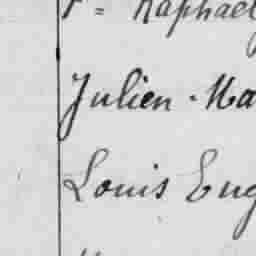 Raphael
Julien - Ma
Louis Eug